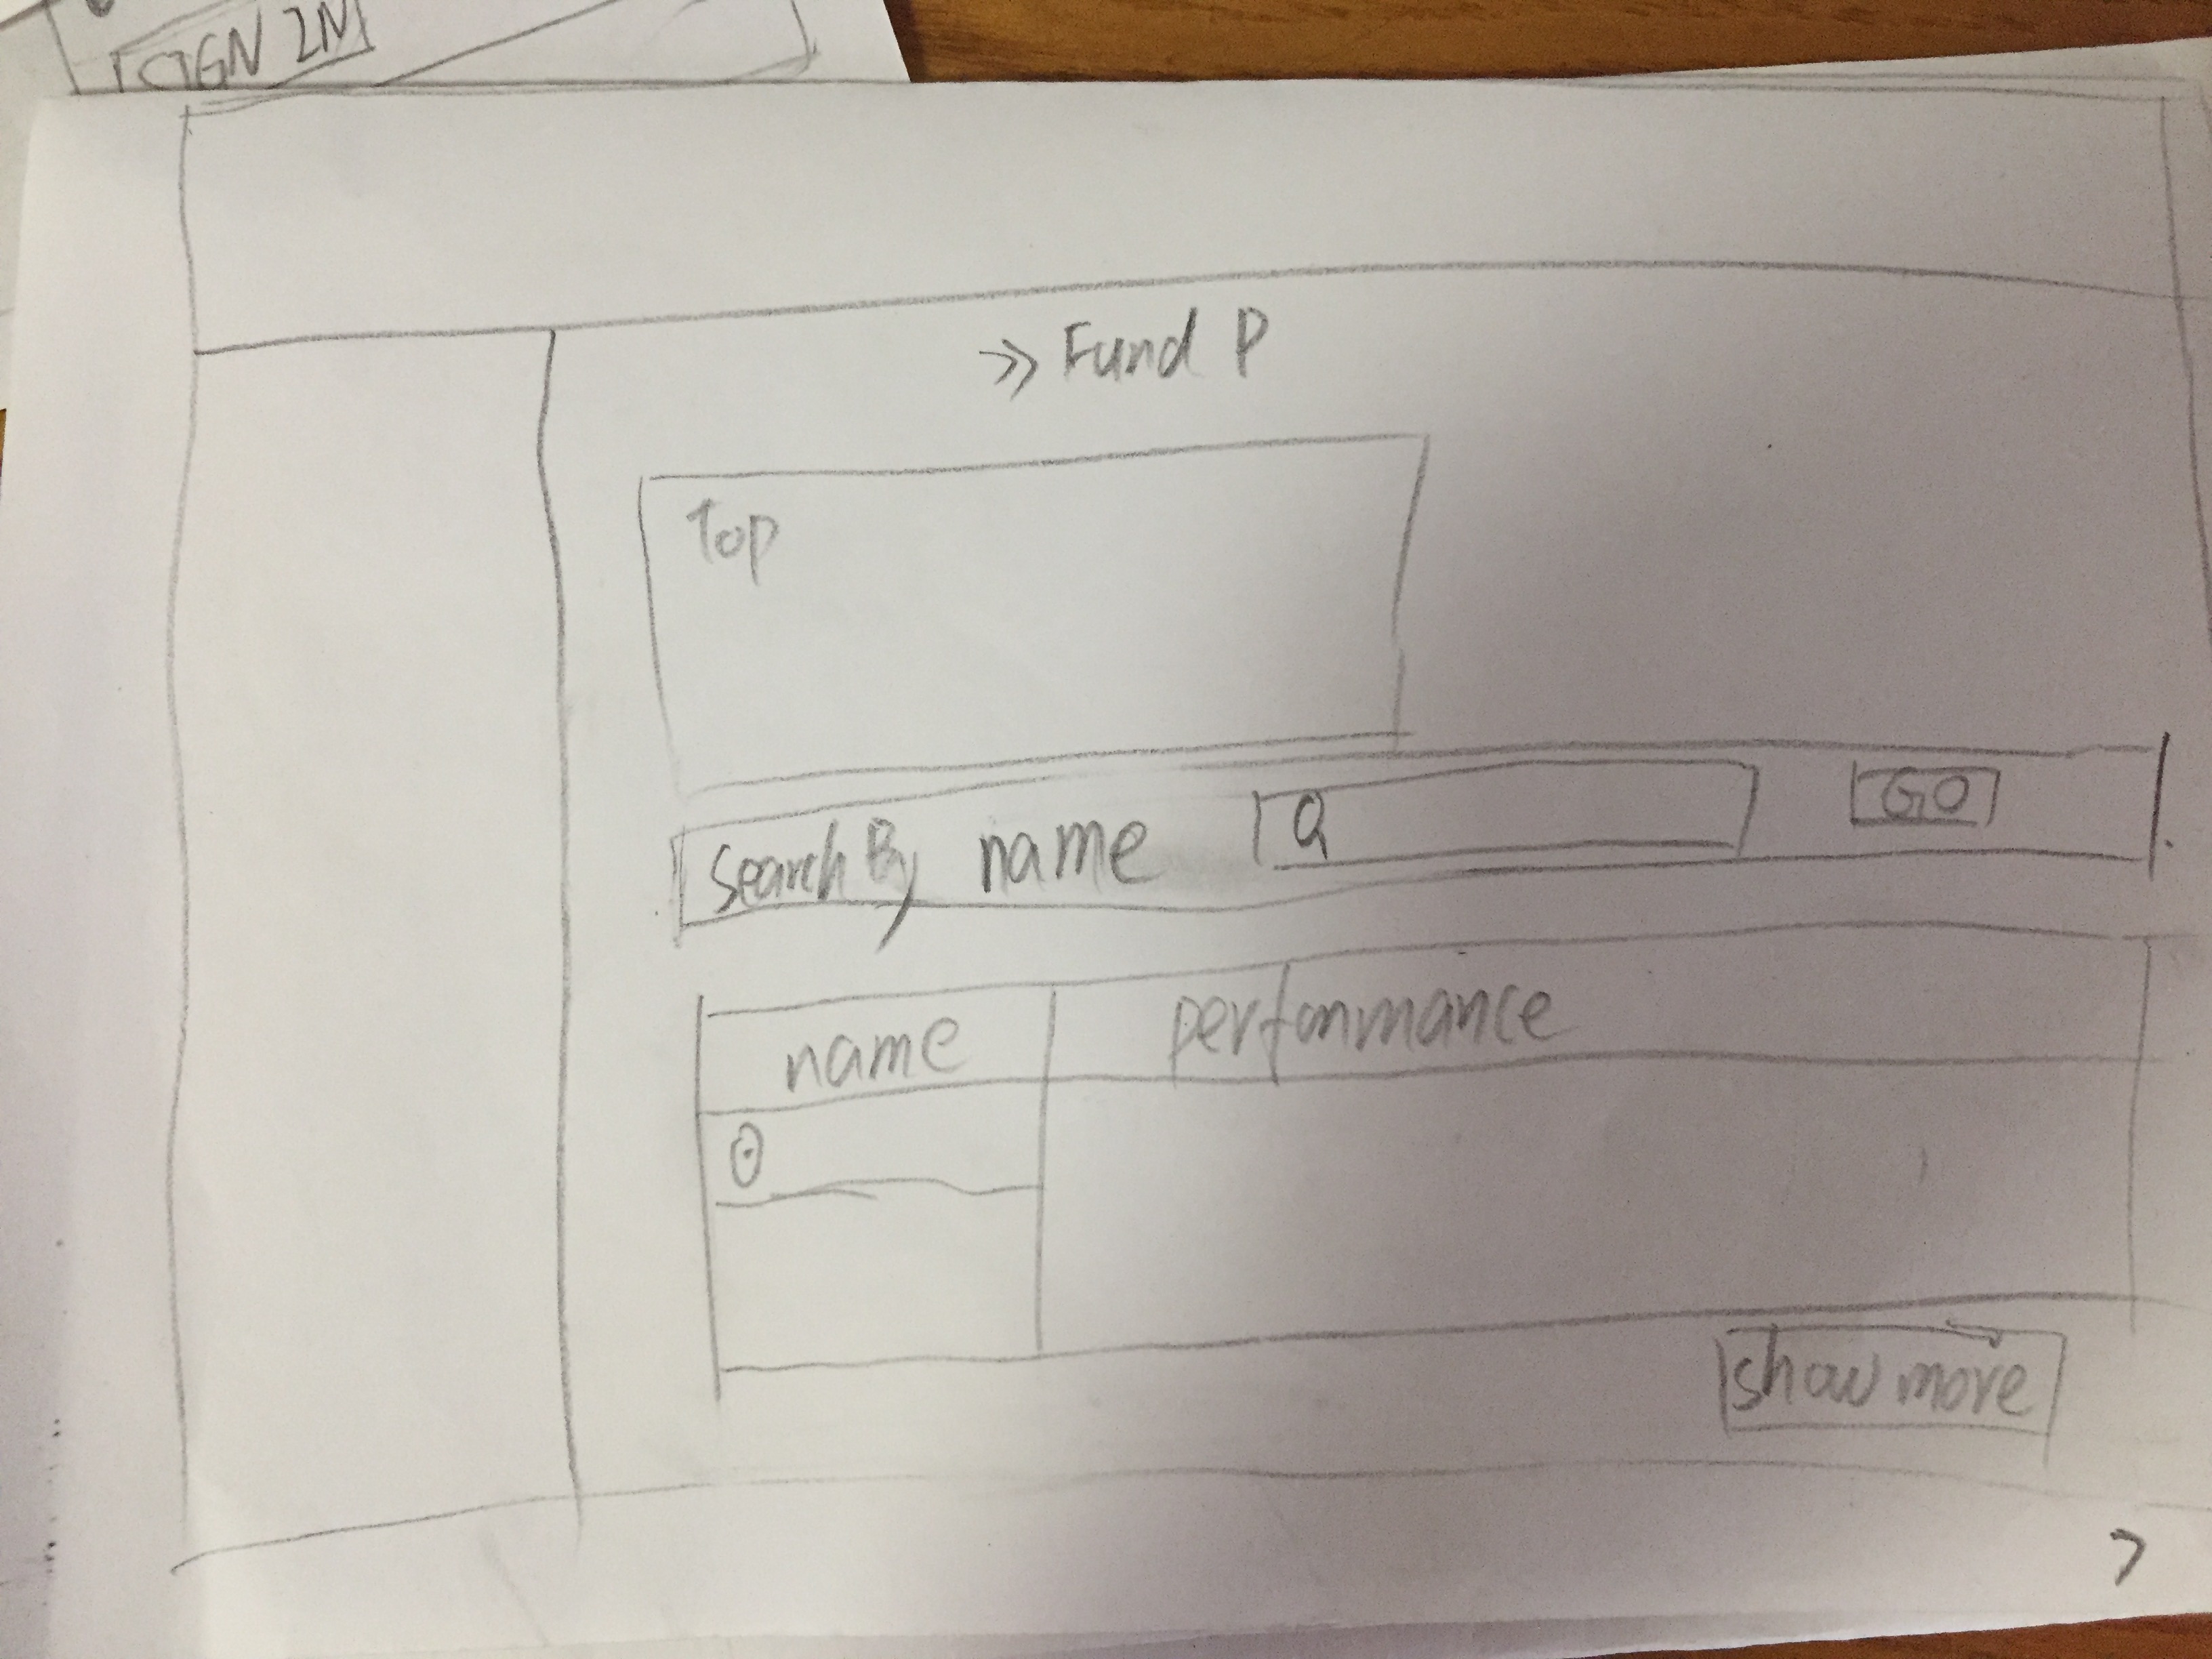 SIGN IN
>> Fund P
Top
Search By name
GO
name performance
show more